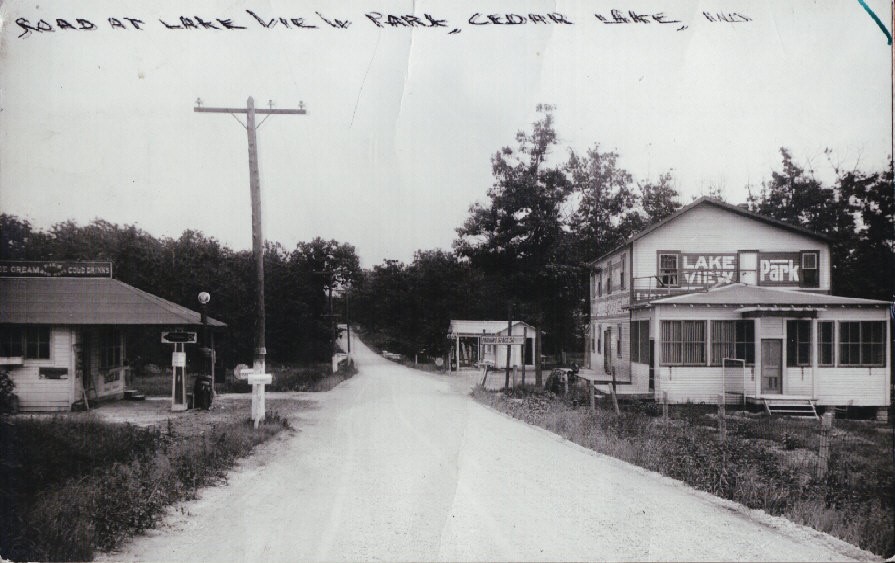 ROAD AT LAKE VIEW PARK, CEDAR LAKE, IND
ICE CREAM COLD DRINKS
LAKE VIEW Park